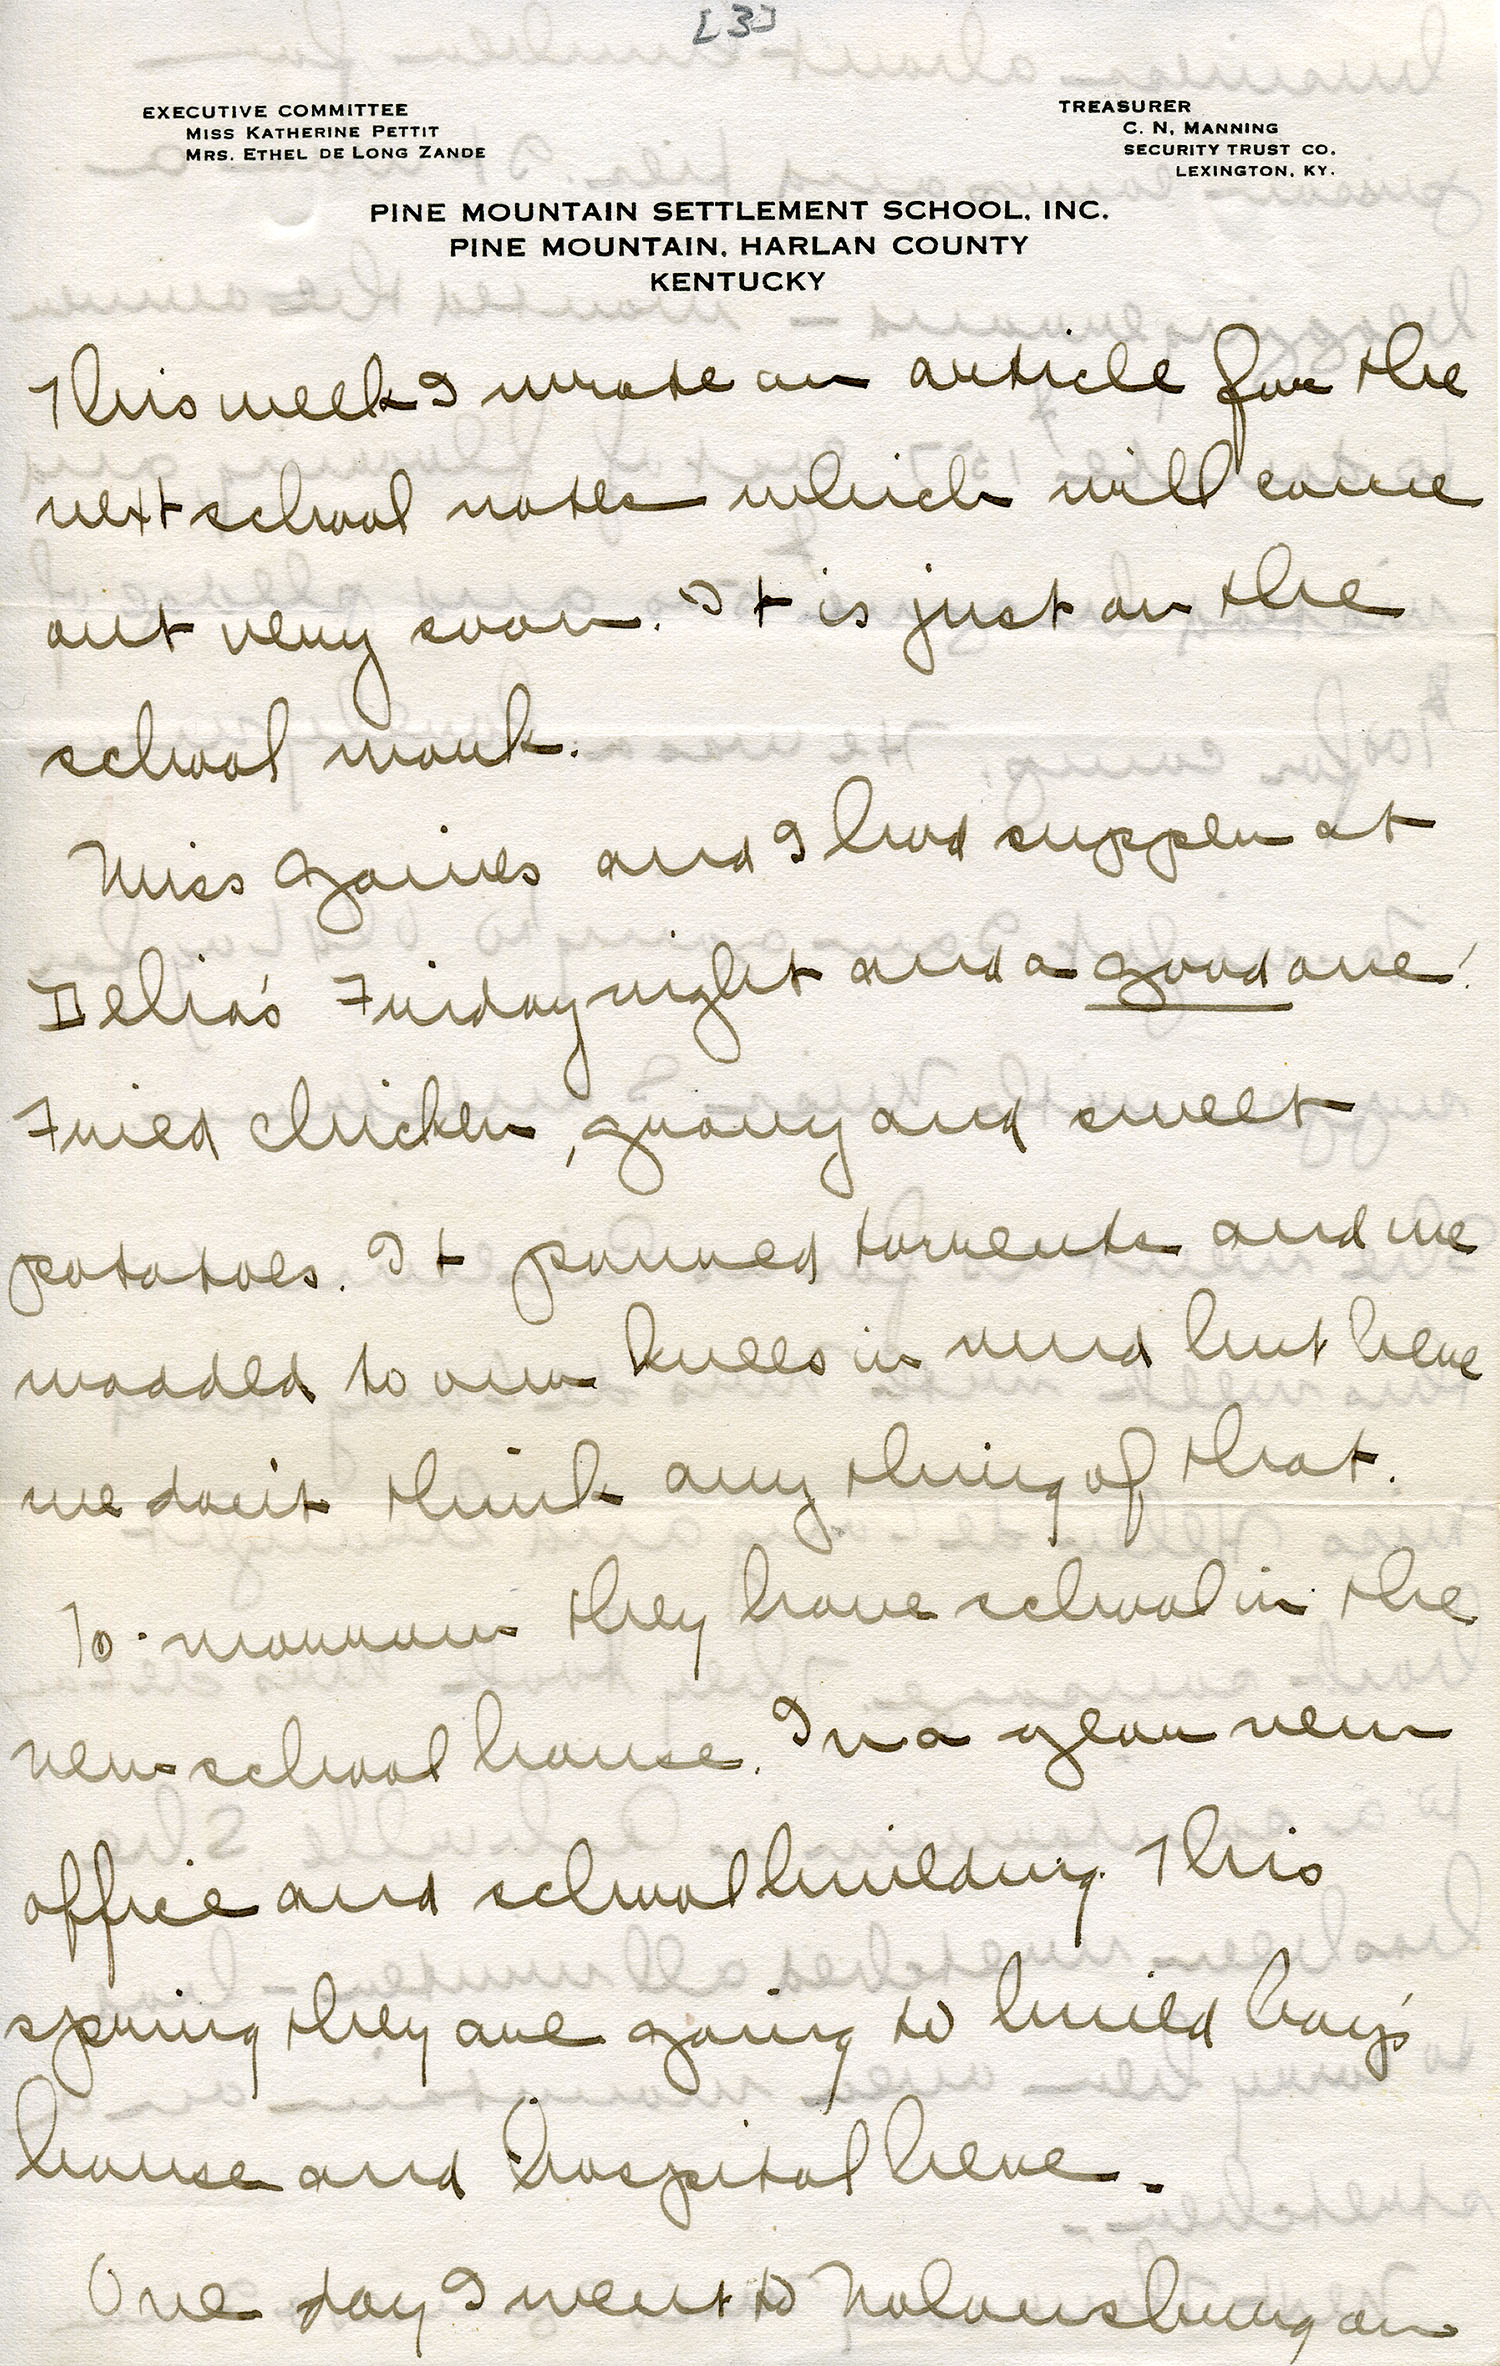 [3]
EXECUTIVE COMMITTEE
MISS KATHERINE PETTIT
MRS. ETHEL DE LONG ZANDE
TREASURER
C. N. MANNING
SECURITY TRUST CO.
LEXINGTON, KY.
PINE MOUNTAIN SETTLEMENT SCHOOL, INC.
PINE MOUNTAIN, HARLAN COUNTY
KENTUCKY
This week I wrote an article for the
next school notes which will come
out very soon. It is just on the
school work.
Miss Gaines and I had supper at
Delia's Friday night and a good one!
Fried chicken, gravy and sweet
potatoes. It poured torrents and we
waded to our knees in mud but here
we don't think any thing of that.
To-morrow they have school in the
new school house. In a year new
office and school building. This
spring they are going to build boy's
house and hospital here.
One day I went to Nolansburg on